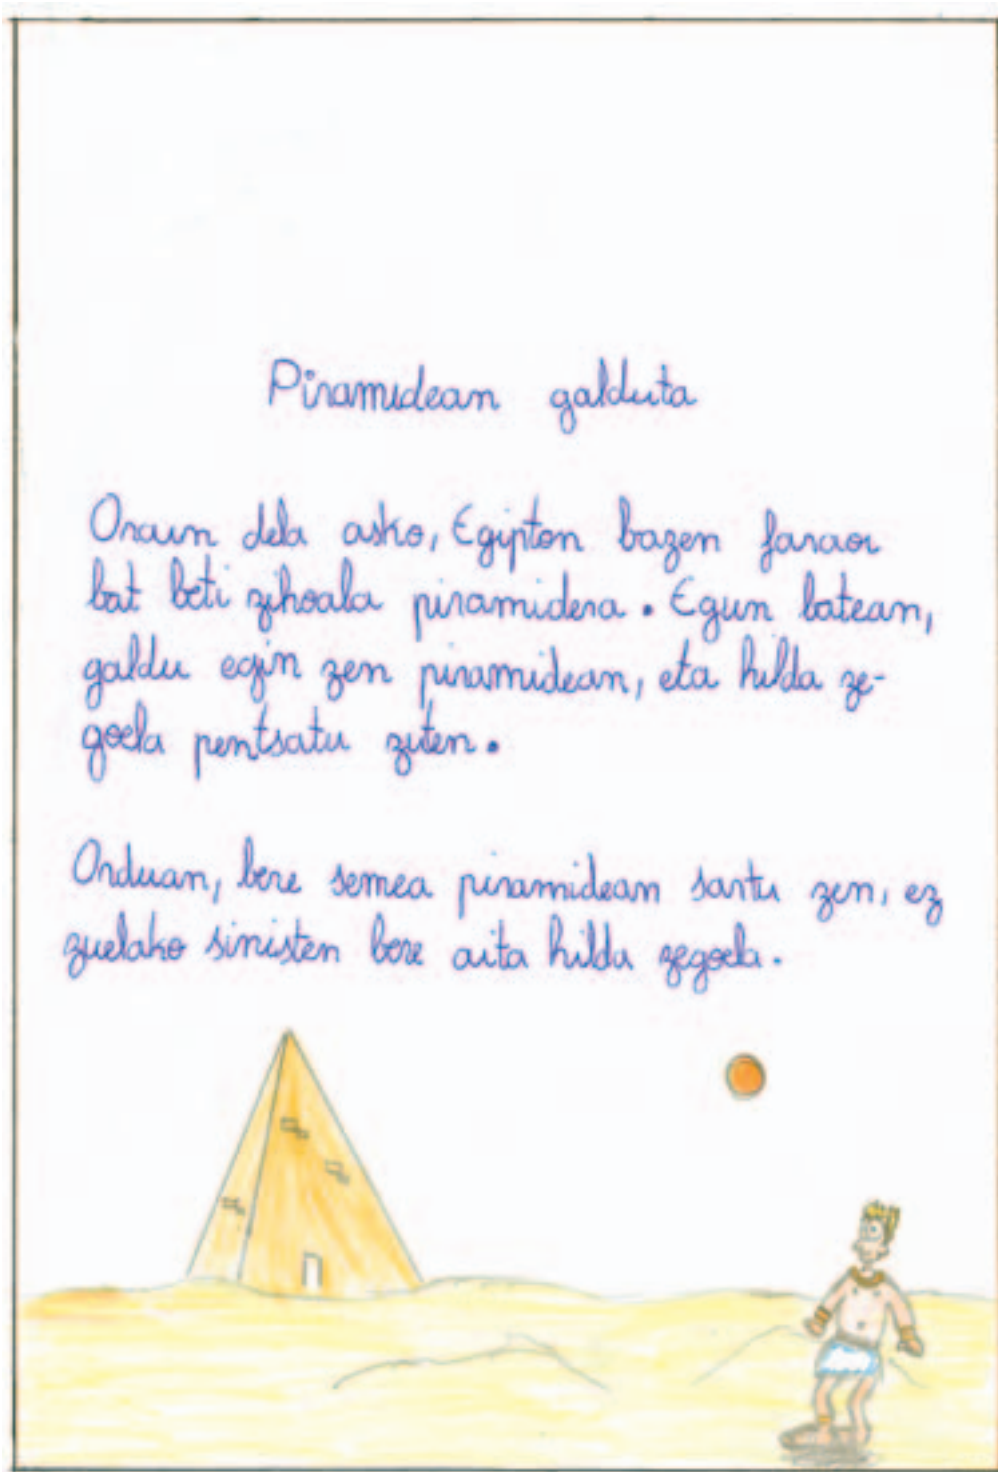 Piramidean galduta
Orain dela asko, Egipton bazen faraoi
bat beti zihoala piramidera. Egun batean,
galdu egin zen piramidean, eta hilda ze-
goela pentsatu zuten.
Orduan, bere semea piramidean sartu zen, ez
zuelako sinisten bere aita hilda zegoela.